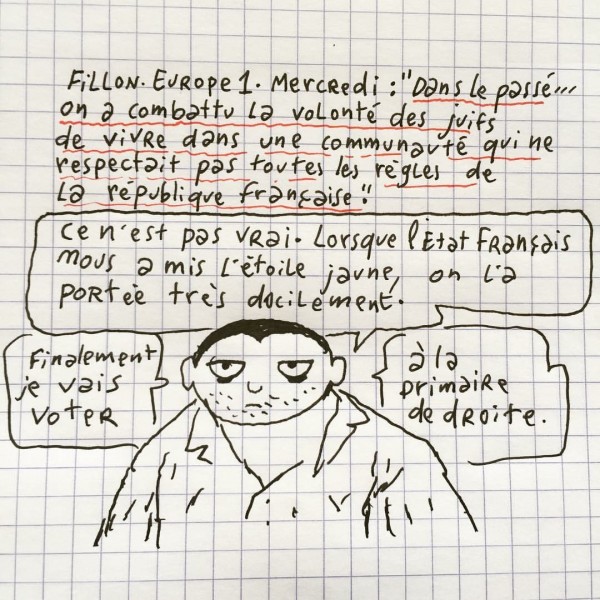 Fillon. Europe 1. Mercredi : "Dans le passé...
on a combattu la volonté des juifs
de vivre dans une communauté qui ne
respectait pas toutes les règles de
la république française."
Ce n'est pas vrai. Lorsque l'État Français
nous a mis l'étoile jaune, on l'a
portée très docilement.
Finalement
je vais
voter
à la
primaire
de droite.